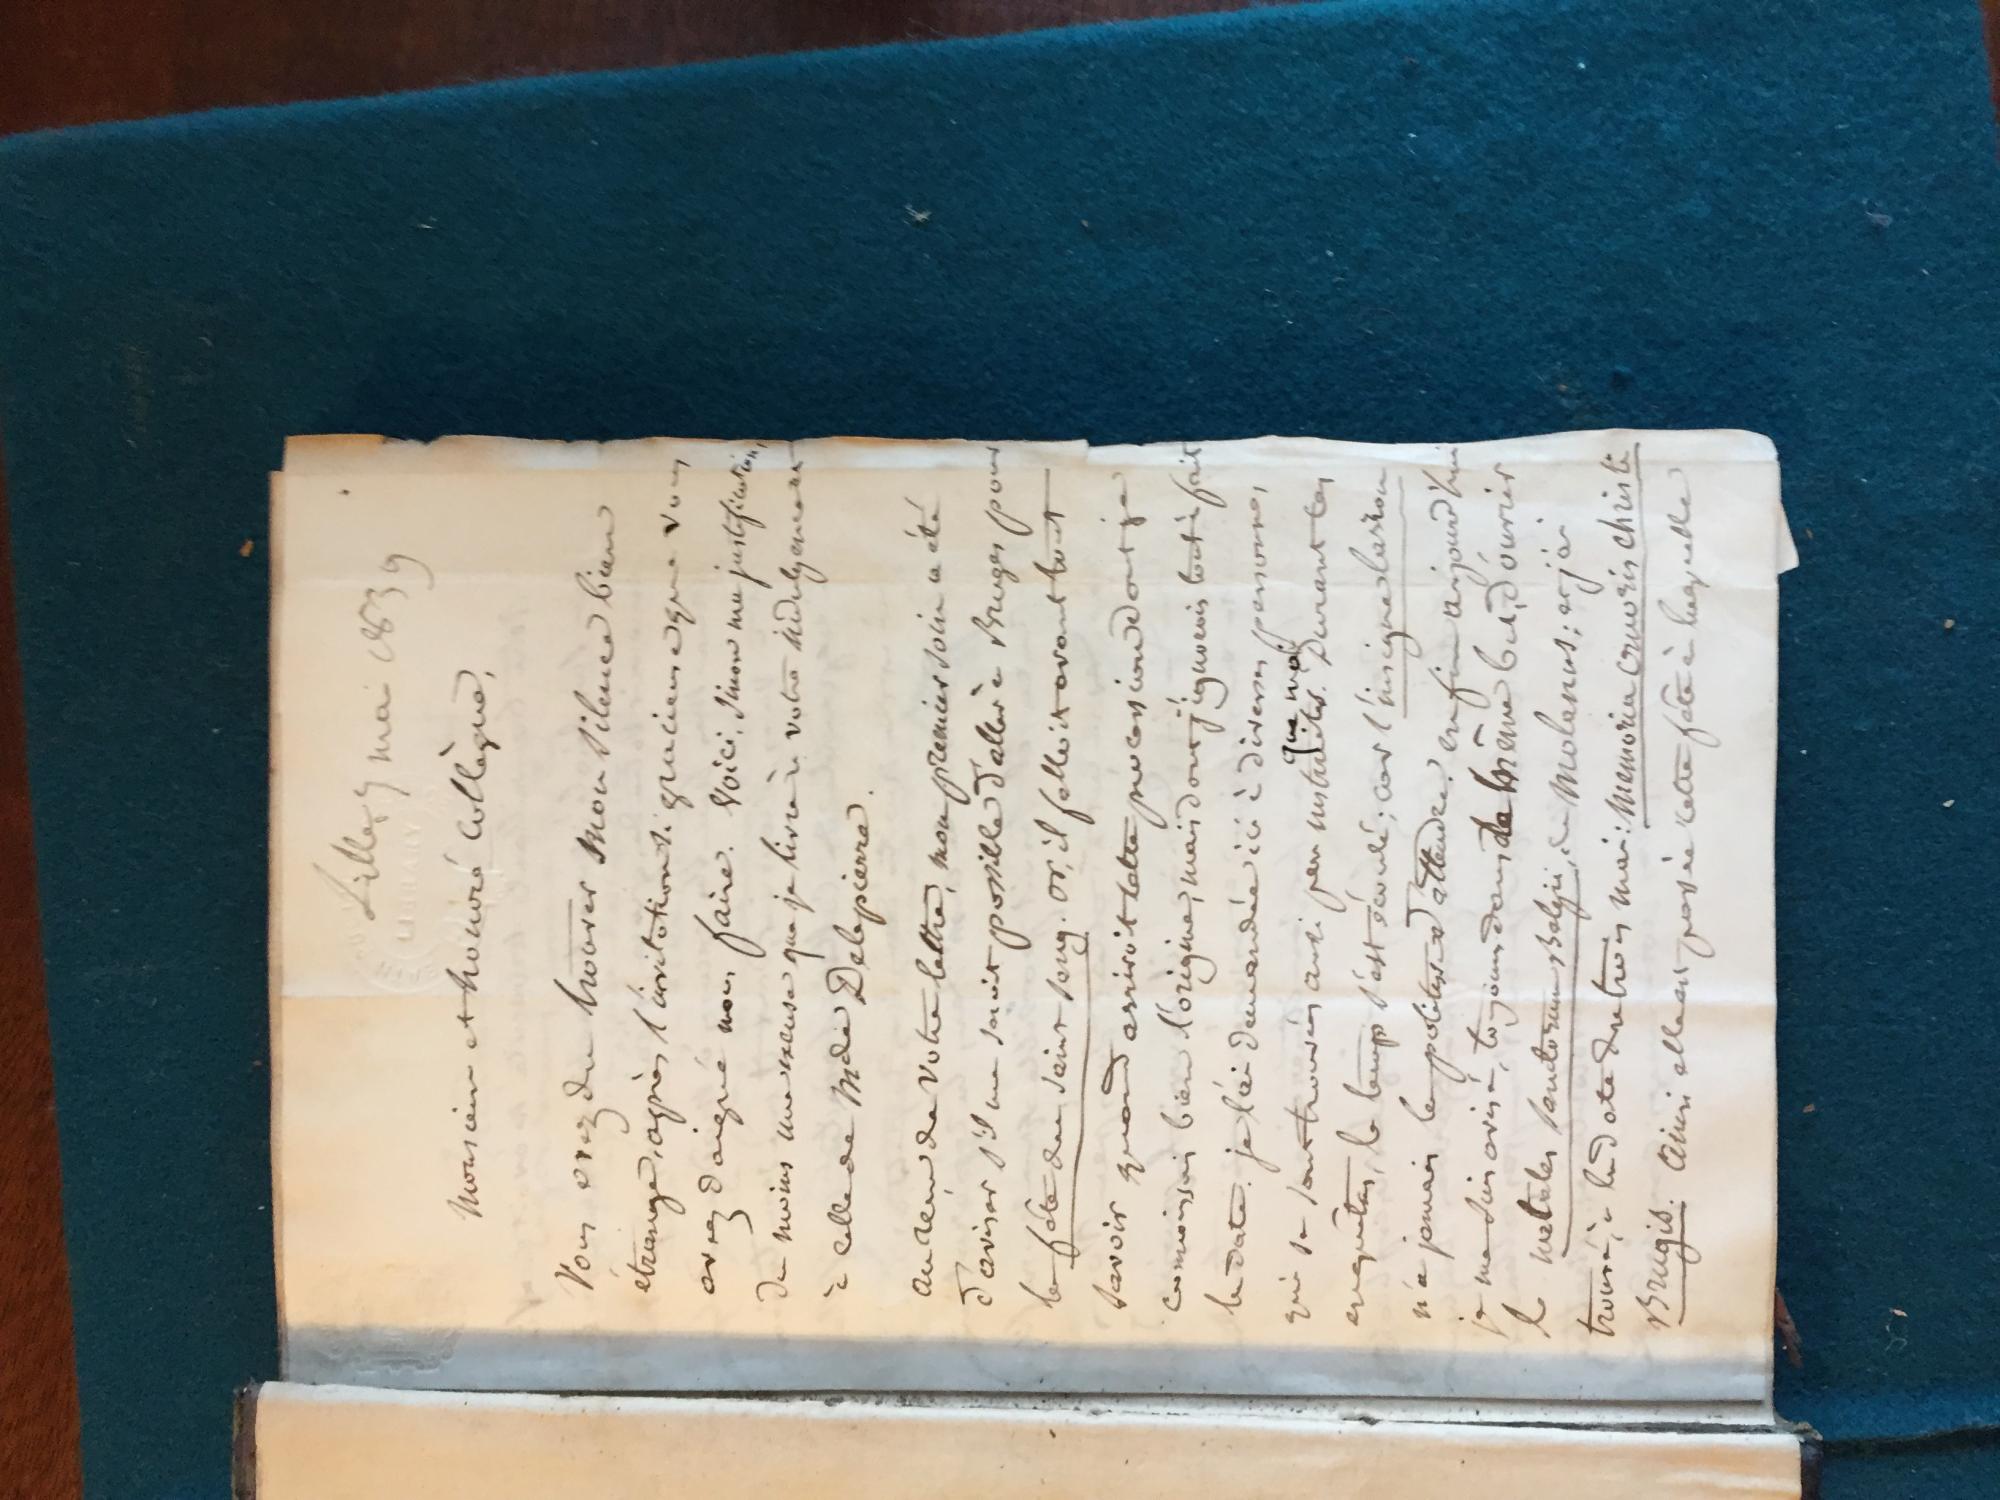 Lille, 7 mai 1839
Monsieur et honoré Collègue,
Vous avez du trouver mon silence bien
étrange, après l'invitation si gracieuse que vous
avez daigné nous faire. Voici, sinon ma justification,
du moins une excuse que je livre à votre indulgence et
à celle de Mde Delepierre.
Au reçu de votre lettre, mon premier soin a été
d'aviser s'il me seroit possible d'aller à Bruges pour
la fête du saint sang. Or, il falloit avant tout
savoir quand arrivoit cette procession dont je
connoissois bien l'origine, mais dont j'ignorois tout à fait
la date. je l'ai demandée ici à diverses personnes,
qui se sont trouvées aussi peu instruites que moi. Durant les
enquêtes, le temps s'est écoulé; car l'insigne barbon
n'a jamais la politesse d'attendre. enfin aujourd'hui
je me suis avisé, toujours dans le même but, d'ouvrir
le natales sanctorum Belgii, de Molanus; et j'ai
trouvé, à la date du trois mai: Memoria cruoris christi
Brugis. Ainsi elle est passée cette fête à laquelle
LIBRARY